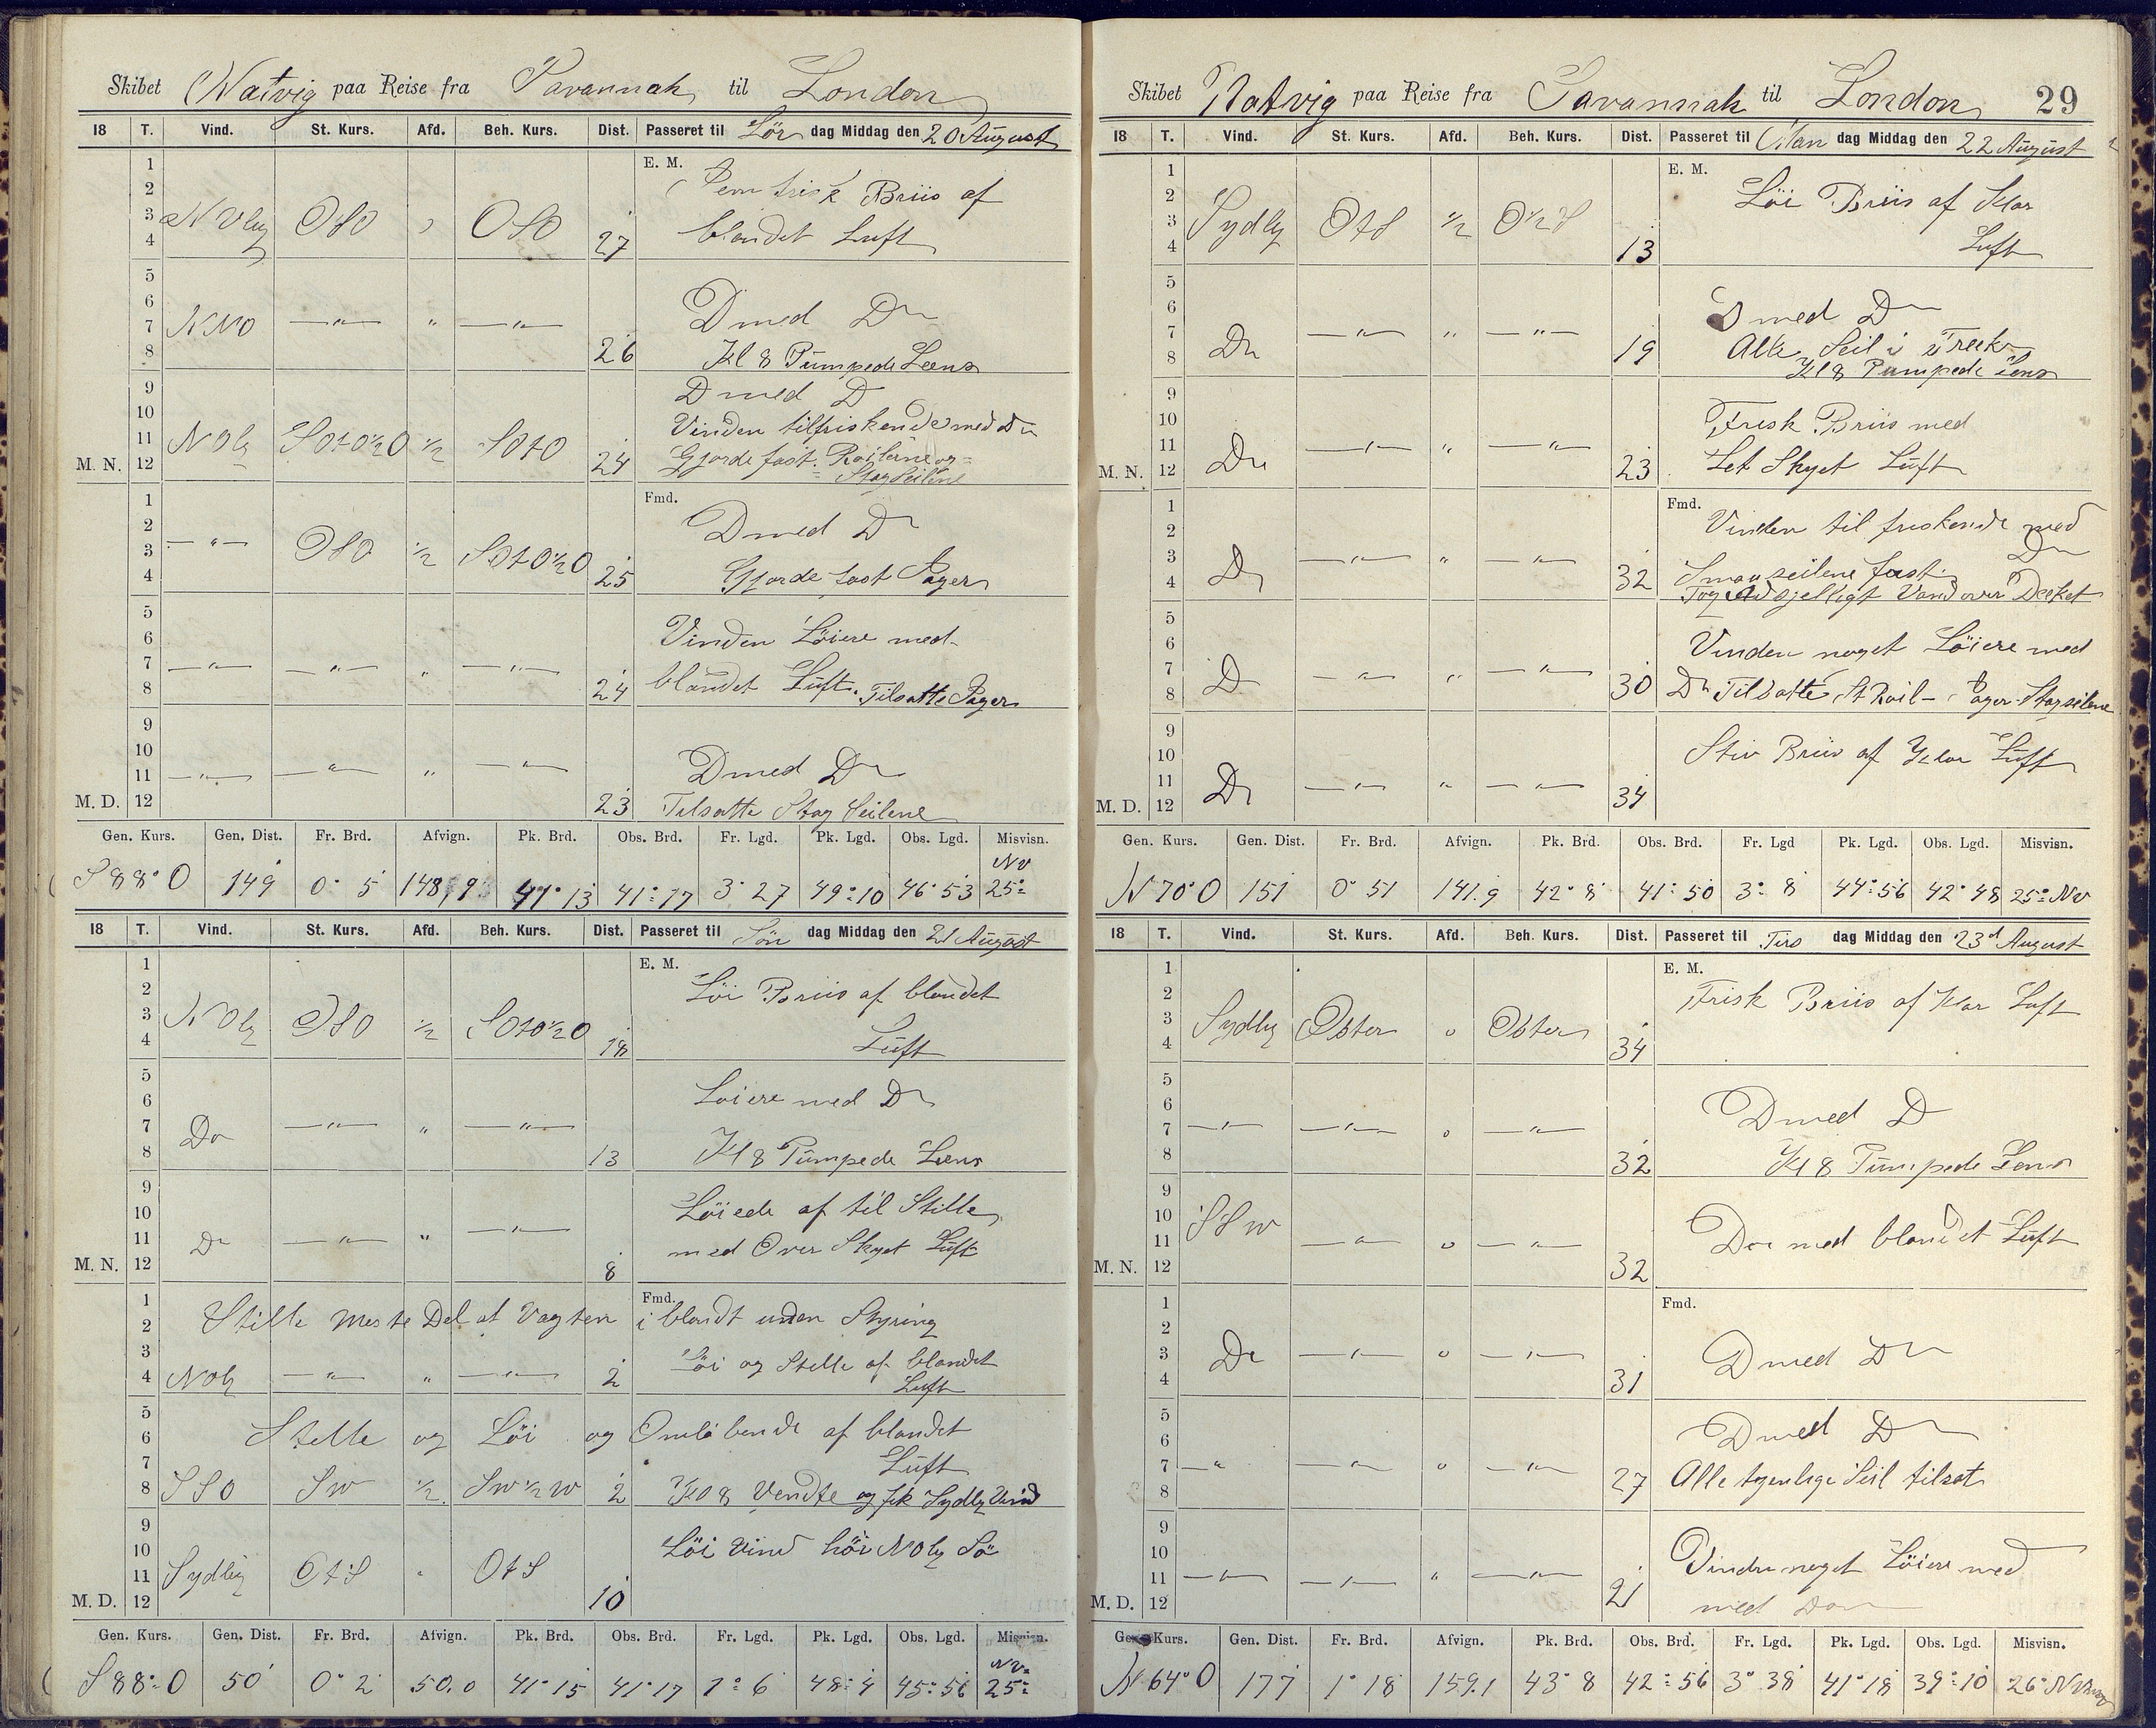 Skibet Natvig paa Reise fra Savannah til London
18 T. Vind. St. Kurs. Afd. Beh. Kurs. Dist. Passeret til Lör dag Middag den 20 August
E. M.
1
2 frisk Briis af
3 NVlig OSO OSO
4 27 blandet Luft
5
6 Dmed Do
7 NNO —"— " —"—
8 26 Kl 8 Pumpede Leens
9 Dmed D
10 Vinden tilfriskende med Do
11 NOlig SOtO½O ½ SOtO
M. N. 12 24 Gjorde fast Roilerne og
Stagseilene
1 Fmd.
2 Dmed Do
3 —"— OSO ½ SOtO½O
4 25 Gjorde fast Jager
5
6 Vinden Löiere med
7 —"— —"— " —"—
8 24 blandet Luft. Tilsatte Jager
9
10 Dmed Do
11 —"— —"— " —"—
M. D. 12 23 Tilsatte Stag Seilene
Gen. Kurs. Gen. Dist. Fr. Brd. Afvign. Pk. Brd. Obs. Brd. Fr. Lgd. Pk. Lgd. Obs. Lgd. Misvisn.
S88°O 149 0° 5 148,9 41° 13 41° 17 3° 27 49° 10 46° 53 NV 25°
18 T. Vind. St. Kurs. Afd. Beh. Kurs. Dist. Passeret til Sön dag Middag den 21 August
1 E. M.
2 Löi Briis af blandet
3 NOlig OSO ½ SOtO½O
4 18 Luft
5
6 Löiere med Do
7 Do —"— " —"—
8 13 Kl 8 Pumpede Leens
9
10 Löiede af til Stille
11 Do —"— " —"— med Over Skyet Luft
M. N. 12 8
1 Fmd.
2 Stille meste Del af Vagten iblandt uden Styring
3 Löi og Stille af blandet
4 NOlig —"— " —"— 2 Luft
5
6 Stille og Löi og Omlöbende af blandet
7 Luft
8 SSO SW ½ SW½W 2 Kl 8 Vendte og fik Sydlig Vind
9
10 Löi Vind höi NOlig Sö
11 Sydlig OtS " OtS
M. D. 12 10
Gen. Kurs. Gen. Dist. Fr. Brd. Afvign. Pk. Brd. Obs. Brd. Fr. Lgd. Pk. Lgd. Obs. Lgd. Misvisn.
S88°O 50 0° 2 50.0 41° 15 41° 17 1° 6 48° 4 45° 56 NV 25°
Skibet Natvig paa Reise fra Savannah til London 29
18 T. Vind. St. Kurs. Afd. Beh. Kurs. Dist. Passeret til Man dag Middag den 22 August
1 E. M.
2 Löi Briis af Klar
3 Sydlig OtS ½ O½S
4 13 Luft
5
6 Dmed Do
7 Do —"— " —"— Alle Seil i Træk
8 19 Kl 8 Pumpede lens
9
10 Frisk Briis med
11 Do —"— " —"—
M. N. 12 23 Let Skyet Luft
1 Fmd. Vinden til friskende med
2 Do
3 Do —"— " —"—
4 32 Smaaseilene fast.
Tog adsjelligt Vand over Dækket
5
6 Vinden noget Löiere med
7 D —"— " —"—
8 30 Do Tilsatte St Roil - Jager - Stagseilene
9
10 Stiv Briis af Klar Luft
11 Do —"— " —"—
M. D. 12 34
Gen. Kurs. Gen. Dist. Fr. Brd. Afvign. Pk. Brd. Obs. Brd. Fr. Lgd Pk. Lgd. Obs. Lgd. Misvisn.
N70°O 151 0° 51 141.9 42° 8 41° 50 3° 8 44° 56 42° 48 25° NV
18 T. Vind. St. Kurs. Afd. Beh. Kurs. Dist. Passeret til Tirs dag Middag den 23d August
1 E. M.
2 Frisk Briis af Klar Luft
3 Sydlig Öster o Öster
4 34
5
6 Dmed D
7 —"— —"— o —"—
8 32 Kl 8 Pumpede Lens
9
10 SSW Do med blandet Luft
11 —"— o —"—
M. N. 12 32
1 Fmd.
2
3 Do —"— o —"— Dmed Do
4 31
5
6 Dmed Do
7 —"— —"— o —"—
8 27 Alle tjenlige Seil tilsat
9
10 Vinden noget Löiere med
11 —"— —"— " —"—
M. D. 12 21 med Do
Gen. Kurs. Gen. Dist. Fr. Brd. Afvign. Pk. Brd. Obs. Brd. Fr. Lgd. Pk. Lgd. Obs. Lgd. Misvisn.
N64°O 177 1° 18 159.1 43° 8 42° 56 3° 38 41° 18 39° 10 26°